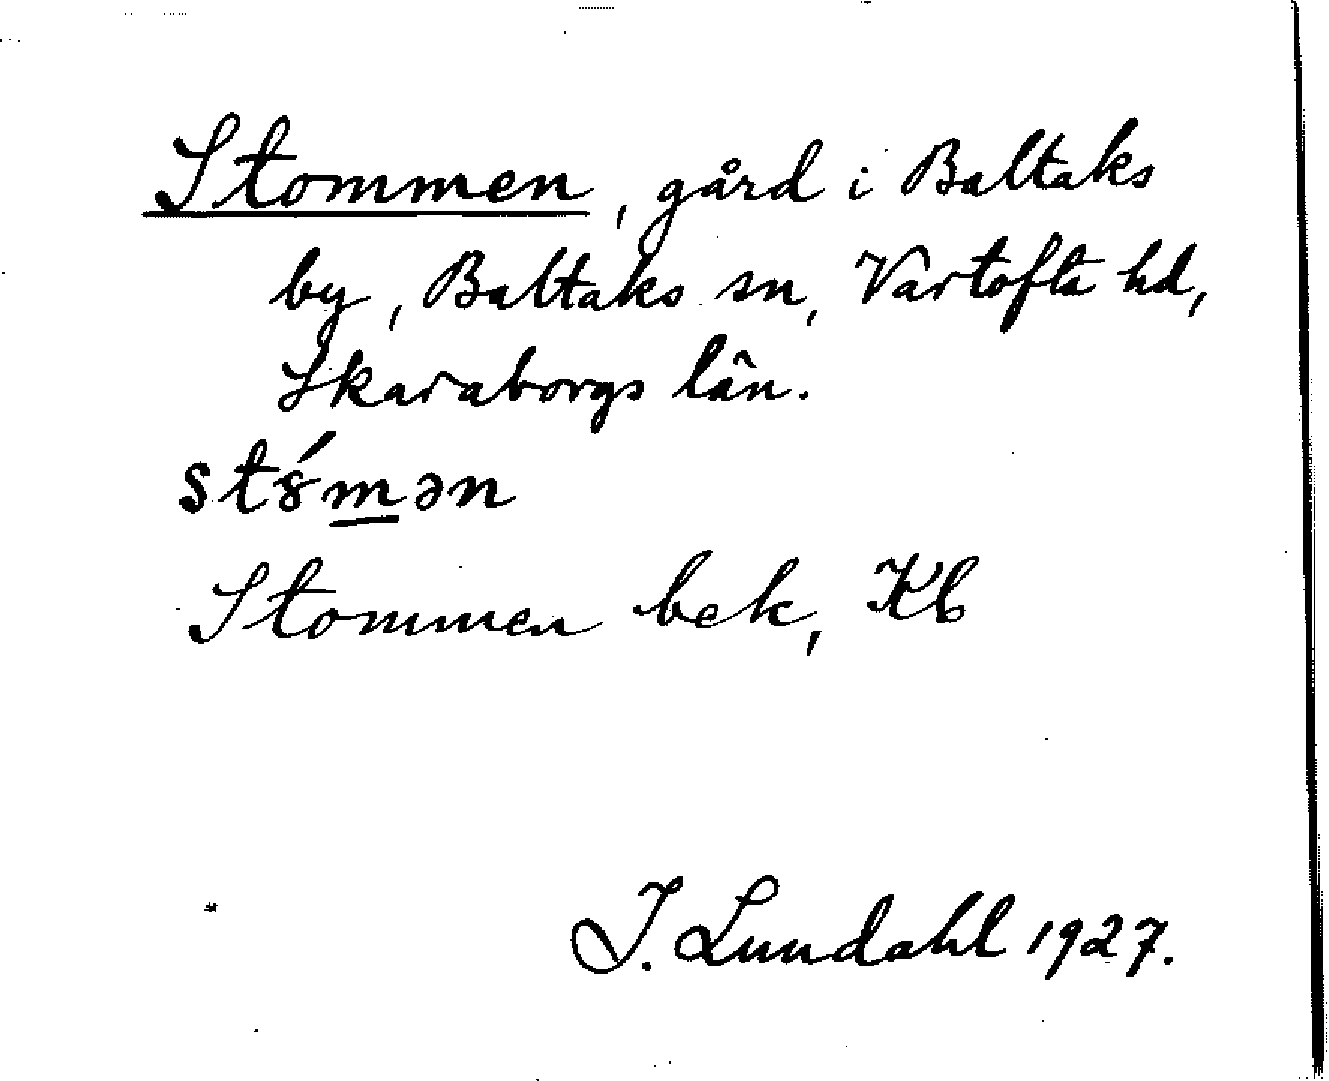 Stommen, gård i Baltaks
by, Baltaks sn, Vartofta hd,
Skaraborgs län.
stȣ́mən
Stommen bek, Kb
J. Lundahl 1927.